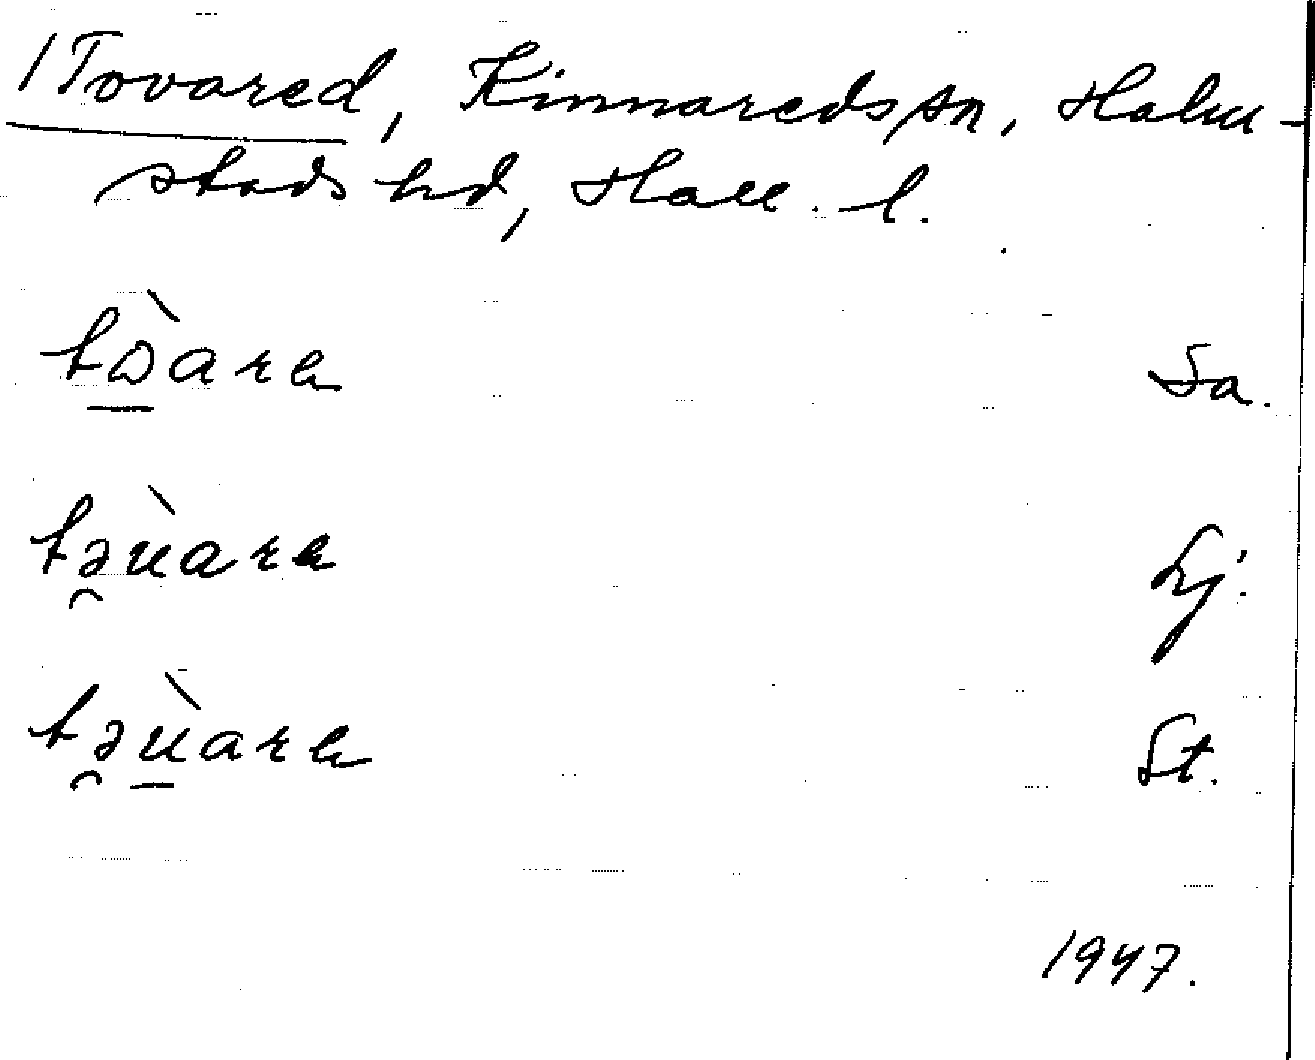 1 Tovared, Kinnareds sn, Halm-
stads hd, Hall. l.
tɷ̀ara Sa.
tə̯ùara Lj.
tə̯ù̠ara St.
1947.